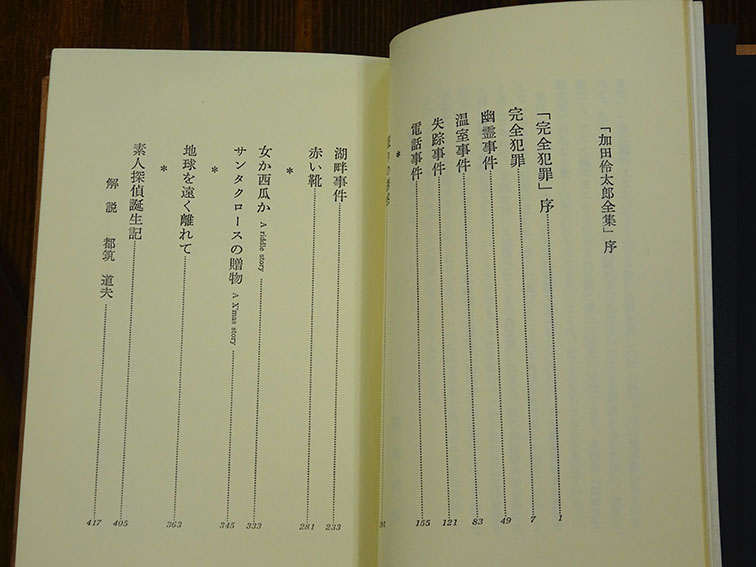 「加田伶太郎全集」序
「完全犯罪」序 1
完全犯罪 7
幽霊事件 49
温室事件 83
失踪事件 121
電話事件 155
*
湖畔事件 233
赤い靴 281
*
女か西瓜か A riddle story 333
サンタクロースの贈物 A X'mas story 345
*
地球を遠く離れて 363
*
素人探偵誕生記 405
解説 都筑道夫 417